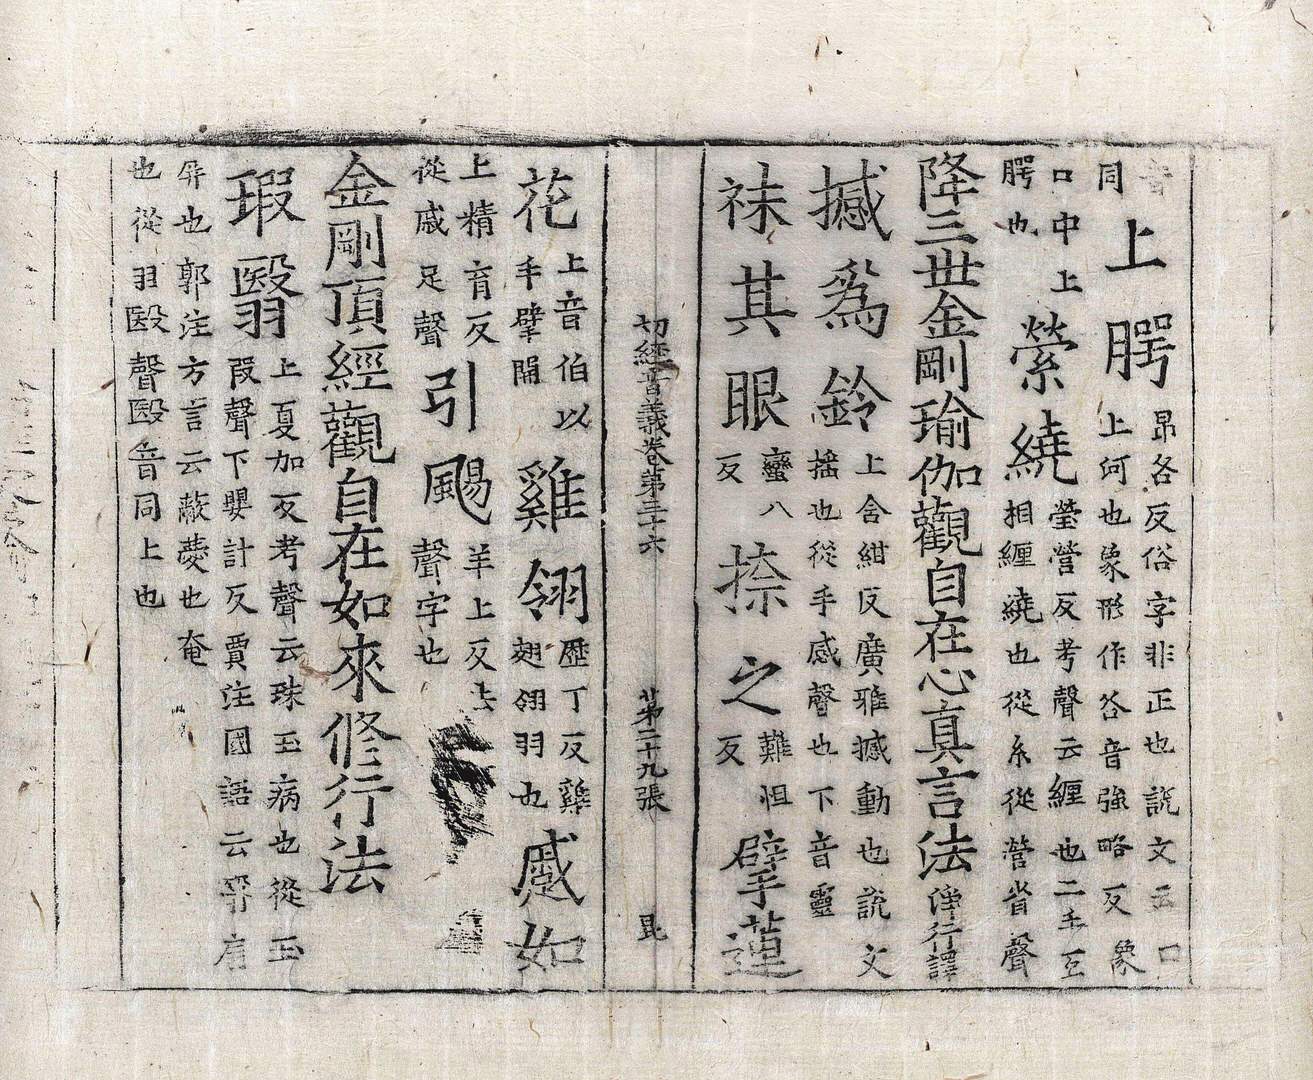 音
同
上腭
昂各反俗字非正也説文云口
上河也象形作谷音強略反象
口中上
腭也
縈繞
瑩營反考聲云纒也二手互
相纒繞也從糸從營省聲
降三世金剛瑜伽觀自在心真言法
淨行譯
撼爲鈴
上含紺反廣雅撼動也説文
搖也從手感聲也下音靈
袜其眼
蠻八
反
捺之
難怛
反
擘蓮
切經音義卷第三十六 第二十九張 昆
花
上音伯以
手擘開
雞翎
歷丁反雞
翅翎羽也
蹙如
上精育反
從戚足聲
引颺
羊上反去
聲字也
金剛頂經觀自在如來修行法
瑕翳
上夏加反考聲云珠玉病也從玉
叚聲下嬰計反賈注國語云翳
屏也郭注方言云蔽薆也奄
也從羽殹聲殹音同上也